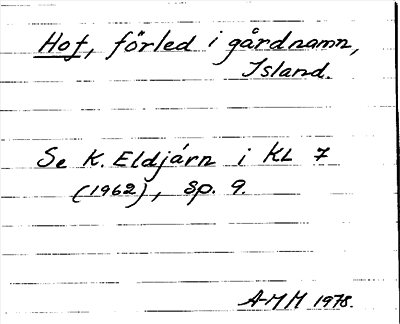 Hof, förled i gårdnamn,
Island.
Se K. Eldjárn i KL 7
(1962), sp. 9.
AMM 1978.